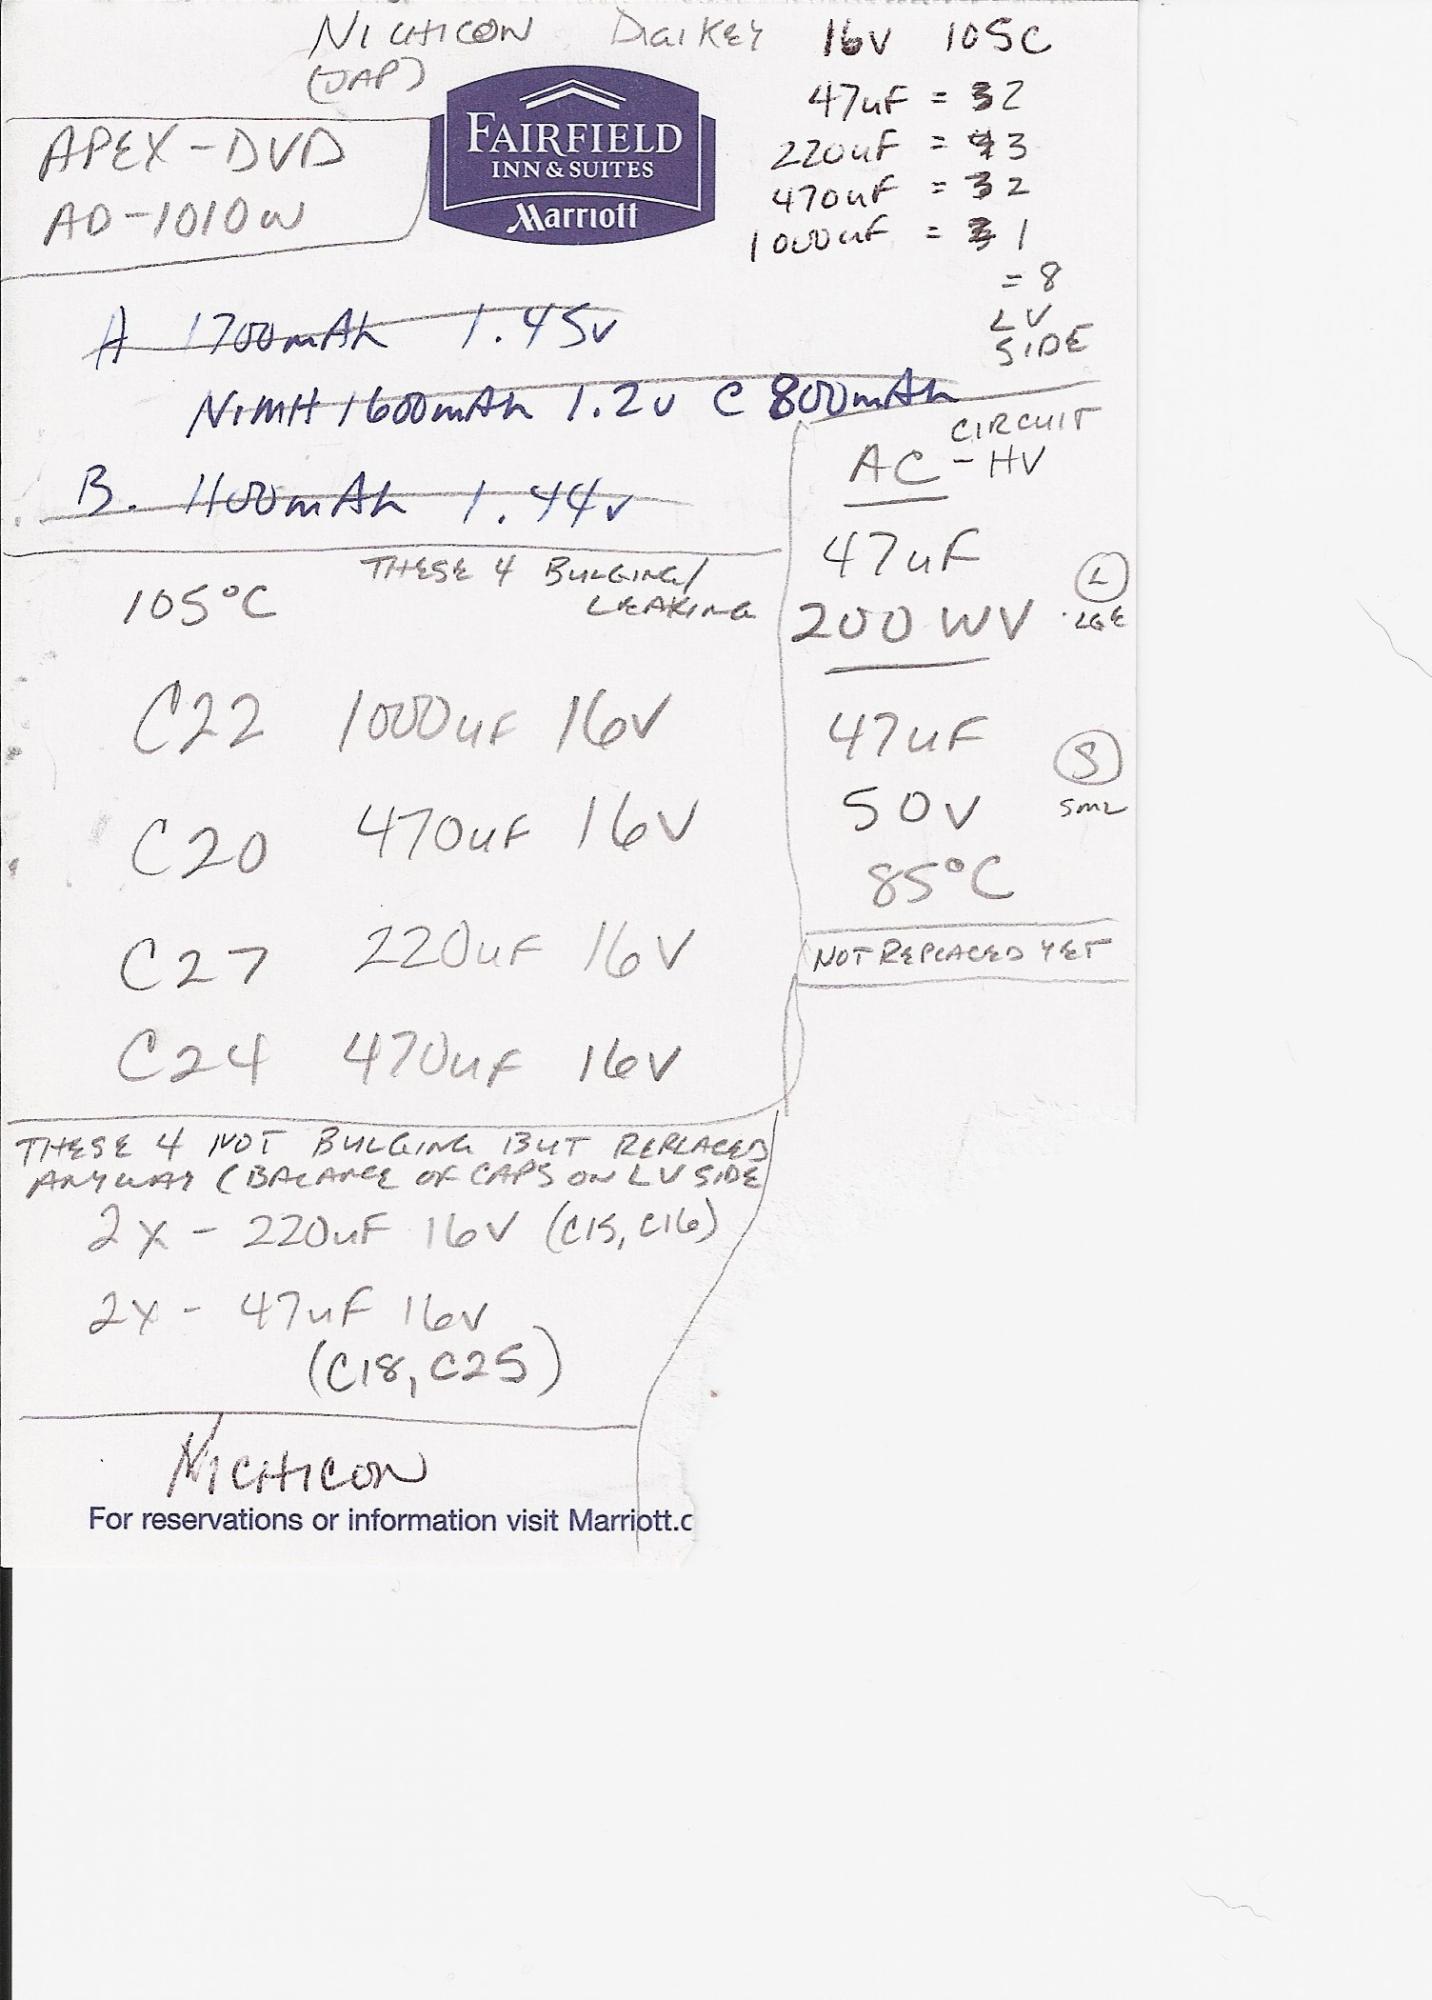 NICHICON DIGIKEY 16V 105C
(JAP)
47uF = 2
220uF = 3
470uF = 2
1000uF = 1
= 8
LV
SIDE
APEX-DVD
AD-1010W
FAIRFIELD
INN & SUITES
Marriott
A 1700mAh 1.45v
NiMH 1600mAh 1.2v C 800mAh
B. 1100mAh 1.44v
AC CIRCUIT
- HV
47uF
200 WV
L
LGE
47uF
50V
S
SML
85°C
NOT REPLACED YET
105°C
THESE 4 BULGING/
LEAKING
C22 1000uF 16V
C20 470uF 16V
C27 220uF 16V
C24 470uF 16V
THESE 4 NOT BULGING BUT REPLACED
ANYWAY (BALANCE OF CAPS ON LV SIDE
2x - 220uF 16V (C15, C16)
2x - 47uF 16V
(C18, C25)
NICHICON
For reservations or information visit Marriott.c